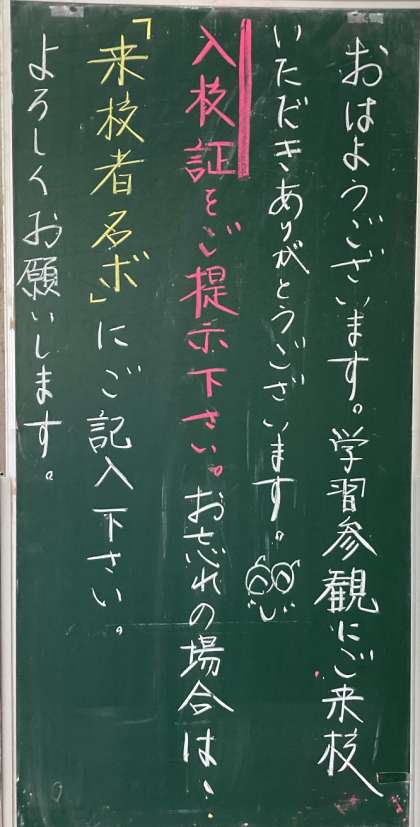 おはようございます。学習参観にご来校
いただきありがとうございます。
入校証をご提示下さい。お忘れの場合は、
「来校者名ボ」にご記入下さい。
よろしくお願いします。